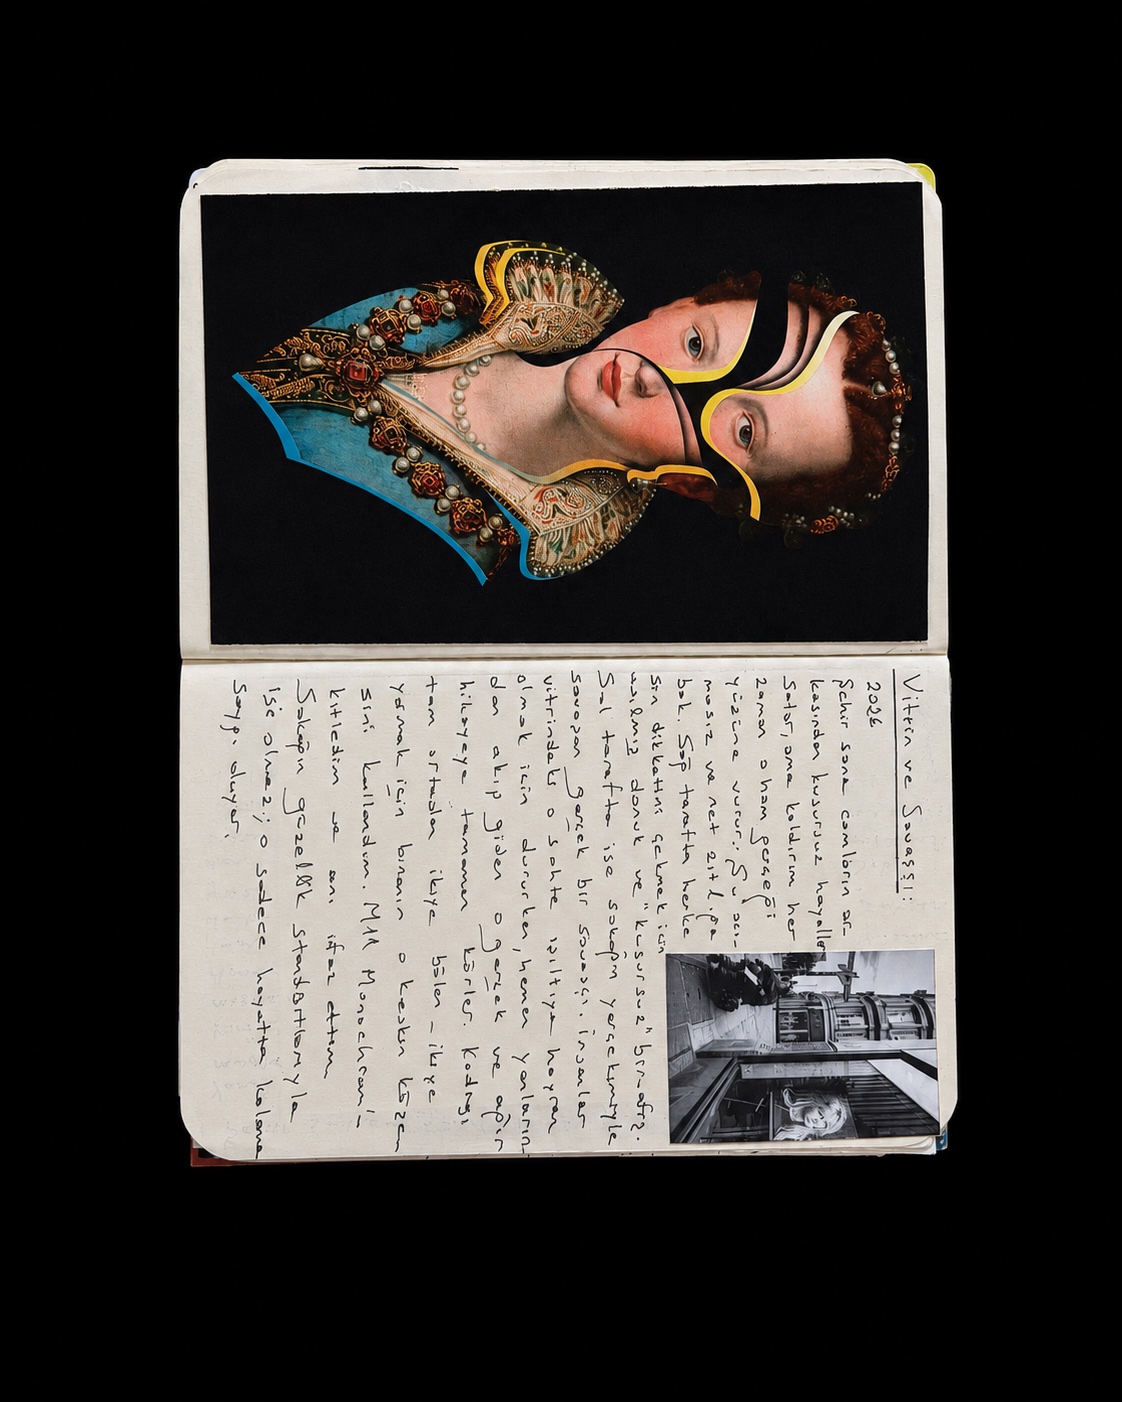 Vitrin ve Savaşçı:
2026
Şehir sana camların ar-
kasından kusursuz hayaller
satar, ama kaldırım her
zaman o ham gerçeği
yüzüne vurur. Şu acı-
masız ve net zıtlığa
bak. Sağ tarafta herke
sin dikkatini çekmek için
asılmış donuk ve "kusursuz" bir afiş.
Sol tarafta ise sokağın yerçekimiyle
savaşan gerçek bir savaşçı. İnsanlar
vitrindeki o sahte ışıltıya hayran
olmak için dururken, hemen yanların-
dan akıp giden o gerçek ve ağır
hikayeye tamamen körler. Kadrajı
tam ortadan ikiye bölen - ikiye
yarmak için binanın o keskin köşe
sini kullandım. M11 Monochrom'-
kitledim ve anı infaz ettim.
Sokağın güzellik standartlarıyla
işi olmaz; o sadece hayatta kalana
saygı duyar.